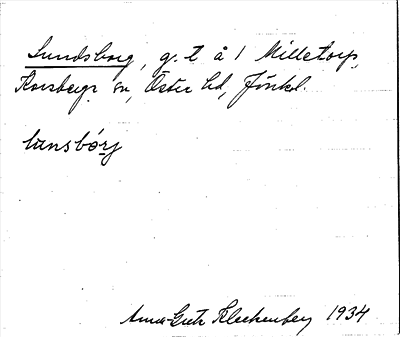 Lundsborg, g. t. å 1 Milletorp,
Korsberga sn, Östra hd, Jönkl.
lunsbórj
Anna-Greta Kleckenberg 1934